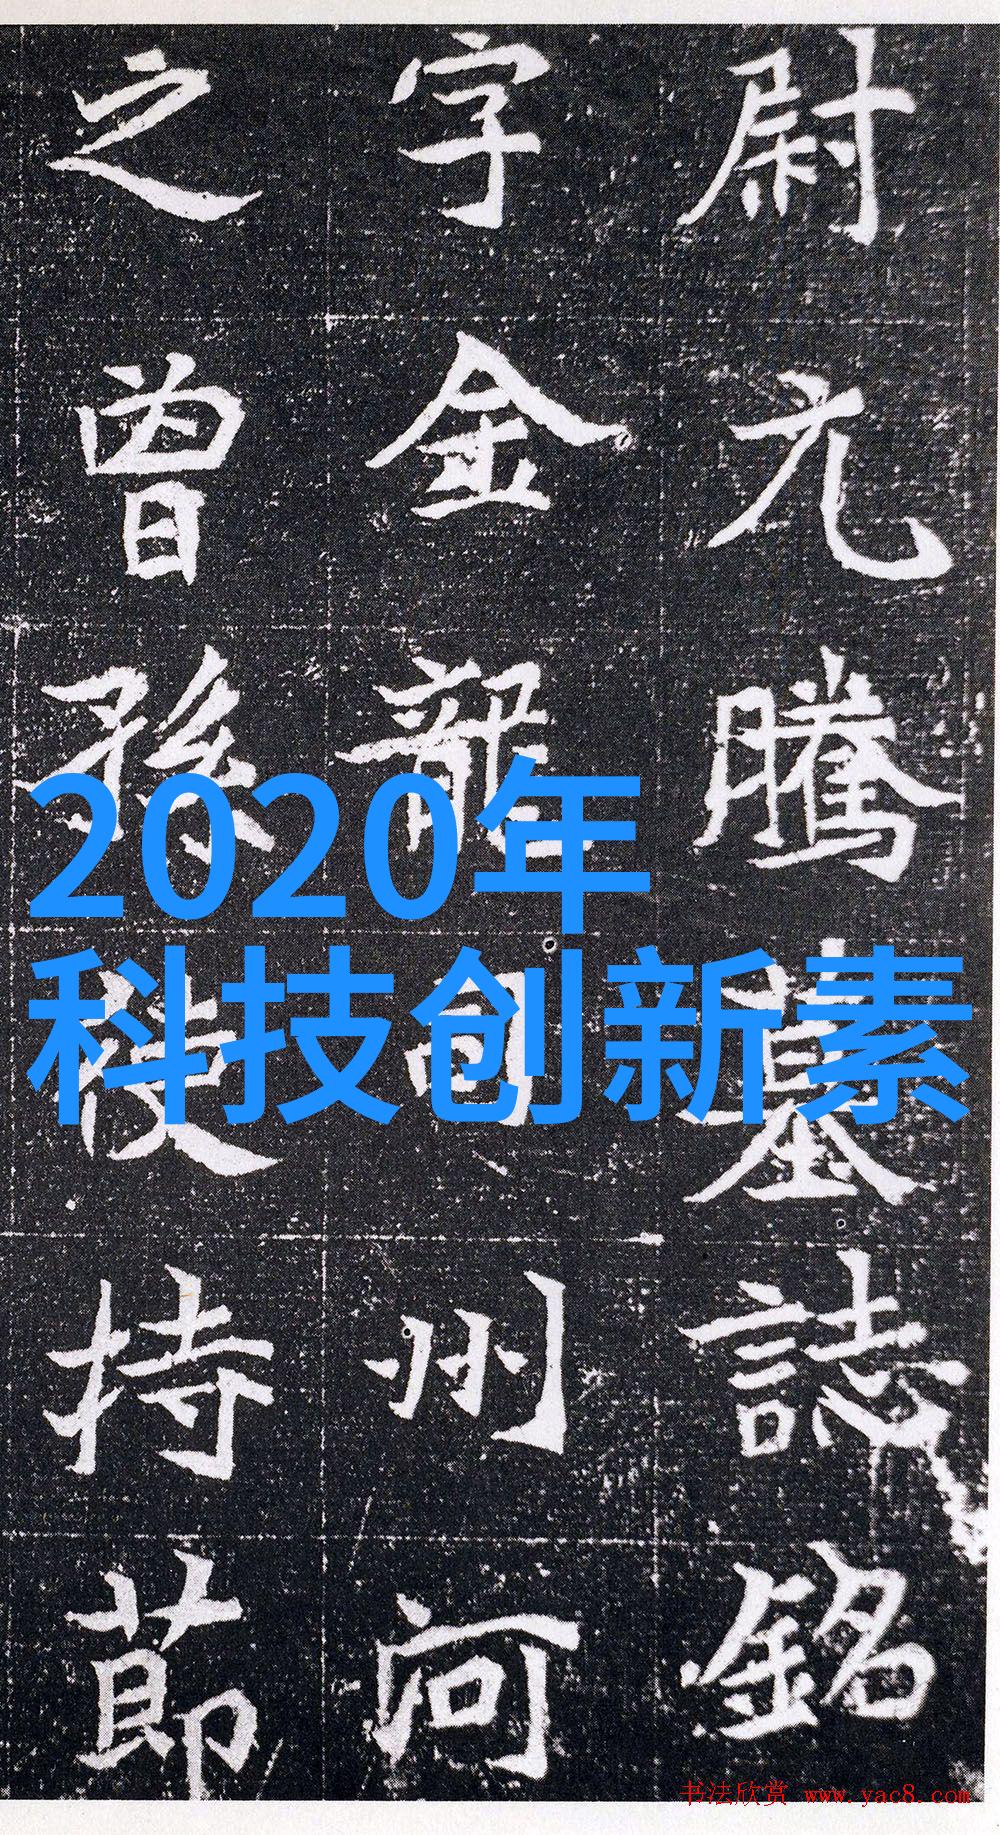 尉元騰墓誌銘
字金龍司州河
之曾孫使持莭
2020年
科技创新素
书法欣赏 www.yac8.com